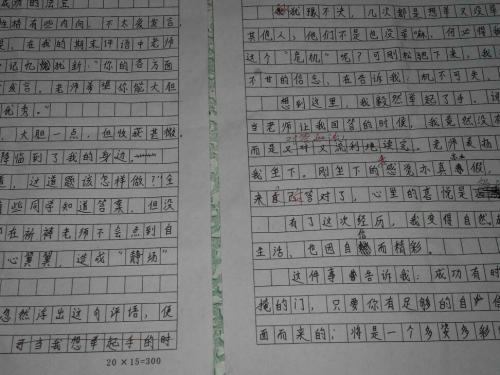 成功的法宝
性格有些内向,不太爱发言
是,在我的期末评语中老师
记忆犹新:"你的各方面
发言。老师希望你能大胆
优秀。"
大胆一点,但收获甚微。
降临到了我的身边
道,这道题该怎样做?"全
有些同学知道答案,但没
都在祈祷老师不会点到自
心翼翼,造成"静场"
忽然浮出这句评语,便
于当我想举起手的时
20×15=300
机不失,几次都是想举又没举
其他人,他们不是也没举嘛,何必得
这个"危机"呢?可刚松驰下来,我
不甘的信念,在告诉我:机不可失,
想到这里,我毅然举起了手。
当老师让我回答的时候,我竟然没有
而是又又流利地读完。老师
我坐下。刚坐下的感觉亦真亦假,
来自己答对了,心里的喜悦是
有了这次经历,我变得自然
生活,也因自信而精彩。
这件事告诉我:成功有时
掩的门,只要你有足够的自信
面而来的,将是一个多姿多彩